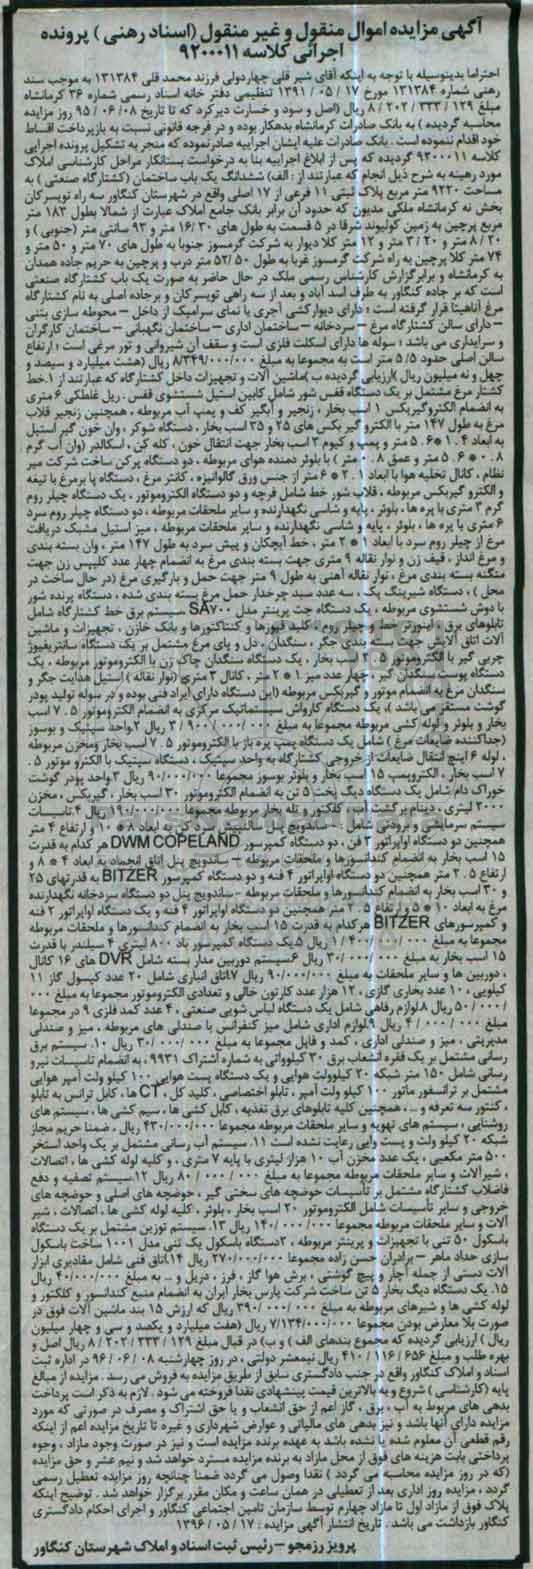 آگهی مزایده اموال منقول و غیر منقول (اسناد رهنی) پرونده
اجرائی کلاسه ۹۲۰۰۰۱۱
احتراما بدینوسیله با توجه به اینکه آقای شیر قلی چهاردولی فرزند محمد قلی ۱۳۱۳۸۴ به موجب سند
رهنی شماره ۱۳۱۳۸۴ مورخ ۱۷ / ۰۵ / ۱۳۹۱ تنظیمی دفتر خانه اسناد رسمی شماره ۳۶ کرمانشاه
مبلغ ۱۲۹ / ۳۳۳ / ۲۰۲ / ۸ ریال (اصل و سود و خسارت دیرکرد که تا تاریخ ۰۸ / ۰۶ / ۹۵ روز مزایده
محاسبه گردیده ) به بانک صادرات کرمانشاه بدهکار بوده و در فرجه قانونی نسبت به بازپرداخت اقساط
خود اقدام ننموده است . بانک صادرات علیه ایشان اجراییه صادر نموده که منجر به تشکیل پرونده اجرایی
کلاسه ۹۲۰۰۰۱۱ گردیده که پس از ابلاغ اجراییه بنا به درخواست بستانکار مراحل کارشناسی املاک
مورد رهینه به شرح ذیل انجام که عبارتند از : الف) ششدانگ یک باب ساختمان (کشتارگاه صنعتی ) به
مساحت ۹۲۲۰ متر مربع پلاک ثبتی ۱۱ فرعی از ۱۷ اصلی واقع در شهرستان کنگاور سه راه تویسرکان
بخش نه کرمانشاه ملکی مدیون که حدود آن برابر بانک جامع املاک عبارت از شمالا بطول ۱۸۳ متر
مربع پرچین به زمین کولیوند شرقا در ۵ قسمت به طول های ۳۰ /۱۶ متر و ۹۳ سانتی متر (جنوبی ) و
۲۰ / ۸ متر و ۲۰ / ۳ متر و ۱۲ متر کلا دیوار به شرکت گرمسوز جنوبا به طول های ۷۰ متر و ۵۰ متر و
۷۴ متر کلا پرچین به راه شرکت گرمسوز غربا به طول ۵۰ /۵۲ متر درب و پرچین به حریم جاده همدان
به کرمانشاه و برابر گزارش کارشناس رسمی ملک در حال حاضر به صورت یک باب کشتارگاه صنعتی
است که بر جاده کنگاور به طرف اسد آباد و بعد از سه راهی تویسرکان و برجاده اصلی به نام کشتارگاه
مرغ آناهیتا قرار گرفته است ؛ دارای دیوارکشی آجری با نمای سرامیک از داخل – محوطه سازی بتنی
– دارای سالن کشتارگاه مرغ – سردخانه – ساختمان اداری – ساختمان نگهبانی – ساختمان کارگران
و سرایداری می باشد ؛ سوله ها دارای اسکلت فلزی است و سقف آن شیروانی و تور مرغی است ؛ ارتفاع
سالن اصلی حدود ۵/۵ متر است به مجموعا به مبلغ ۸/۳۴۹/۰۰۰/۰۰۰ ریال (هشت میلیارد و سیصد و
چهل و نه میلیون ریال )ارزیابی گردیده ب )ماشین آلات و تجهیزات داخل کشتارگاه که عبارتند از ۱.خط
کشتار مرغ مشتمل بر یک دستگاه قفس شور شامل کابین استیل شستشوی قفس ، ریل غلطکی ۶ متری
به انضمام الکتروگیربکس ۱ اسب بخار ، زنجیر و آبگیر کف و پمپ آب مربوطه ، همچنین زنجیر قلاب
مرغ به طول ۱۴۷ متر با الکترو گیر بکس های ۲۵ و ۳۵ اسب بخار ، دستگاه شوکر ، وان خون گیر استیل
به ابعاد ۱.۴ * ۶.۵ متر و پمپ و کیوم ۳ اسب بخار جهت انتقال خون ، کله کن ، اسکالدر (وان آب گرم
۰.۸ * ۶.۵ متر و عمق ۰.۸ متر ) با بلوئر دمنده هوای مربوطه ، دو دستگاه پرکن ساخت شرکت میر
نظام ، کانال تخلیه هوا با ابعاد ۲.۰ * ۶ متر از جنس ورق گالوانیزه ، کانتر مرغ ، دستگاه پا برمرغ با تیغه
و الکترو گیربکس مربوطه ، قلاب شور خط شامل فرچه و دو دستگاه الکتروموتور ، یک دستگاه چیلر روم
گرم ۳ متری با پره ها ، بلوئر ، پایه و شاسی نگهدارنده و سایر ملحقات مربوطه ، دو دستگاه چیلر روم سرد
۶ متری با پره ها ، بلوئر ، پایه و شاسی نگهدارنده و سایر ملحقات مربوطه ، میز استیل مشبک دریافت
مرغ از چیلر روم سرد با ابعاد ۱ * ۲ متر ، خط آبچکان و پیش سرد به طول ۱۴۷ متر ، وان بسته بندی
و مرغ انداز ، قیف زن و نوار نقاله ۹ متری جهت بسته بندی مرغ به انضمام چهار عدد کلیپس زن جهت
منگنه بسته بندی مرغ ، نوار نقاله آهنی به طول ۹ متر جهت حمل و بارگیری مرغ (در حال ساخت در
محل ) ، دستگاه شیرینگ پک ، سه عدد سبد چرخدار حمل مرغ بسته بندی شده ، دستگاه پرنده شور
با دوش شستشوی مربوطه ، یک دستگاه جت پرینتر مدل SA۷۰۰ سیستم برق خط کشتارگاه شامل
تابلوهای برق ، اینورتر خط و چیلر روم ، کلید فیوزها و کنتاکتورها و بانک خازن ، تجهیزات و ماشین
آلات اتاق آلایش جهت بسته بندی جگر ، سنگدان ، دل و پای مرغ مشتمل بر یک دستگاه سانتریفیوژ
چربی گیر با الکتروموتور ۵.۲ اسب بخار ، یک دستگاه سنگدان چاک زن با الکتروموتور مربوطه ، یک
دستگاه پوست سنگدان گیر ، چهار عدد میز ۱ * ۲ متر ، کانال ۳ متری (نوار نقاله ) استیل هدایت جگر و
سنگدان مرغ به انضمام موتور و گیربکس مربوطه (این دستگاه دارای ایراد فنی بوده و در سوله تولید پودر
گوشت مستقر می باشد )، یک دستگاه کارواش سیستماتیک مرکزی به انضمام الکتروموتور ۵.۷ اسب
بخار و بلوئر و لوله کشی مربوطه مجموعا به مبلغ ۰۰۰/۰۰۰/ ۹۰۰ / ۳ ریال ۲.واحد سپتیک و بوسوز
(جداکننده ضایعات مرغ ) شامل یک دستگاه پمپ پره باز با الکتروموتور ۵.۷ اسب بخار ومخزن مربوطه
، لوله ۶ اینچ انتقال ضایعات از خروجی کشتارگاه به واحد سپتیک ، دستگاه سپتیک با الکترو موتور ۵.
۷ اسب بخار ، الکتروپمپ ۱۵ اسب بخار و بلوئر بوسوز مجموعا ۹۰/۰۰۰/۰۰۰ ریال ۳.واحد پودر گوشت
خوراک دام شامل یک دستگاه دیگ پخت ۵ تن به انضمام الکتروموتور ۳۰ اسب بخار ، گیربکس ، مخزن
۲۰۰۰ لیتری ، دینام برگشت آب ، کلکتور و تله بخار مربوطه مجموعا ۱۹۰/۰۰۰/۰۰۰ ریال ۴.تاسیسات
سیستم سرمایشی و برودتی شامل : - ساندویچ پنل سالنپیش سرد کن به ابعاد ۸ * ۱۰ و ارتفاع ۴ متر
همچنین دو دستگاه اواپراتور ۳ فن ، دو دستگاه کمپرسور DWM COPELAND هر کدام به قدرت
۱۵ اسب بخار به انضمام کندانسورها و ملحقات مربوطه – ساندویچ پنل اتاق انجماد به ابعاد ۴ * ۸ و
ارتفاع ۵.۲ متر همچنین دو دستگاه اواپراتور ۴ فنه و دو دستگاه کمپرسور BITZER به قدرتهای ۲۵
و ۳۰ اسب بخار به انضمام کندانسورها و ملحقات مربوطه – ساندویچ پنل دو دستگاه سردخانه نگهدارنده
مرغ به ابعاد ۱۰ * ۵ و ارتفاع ۵.۲ متر همچنین دو دستگاه اواپراتور ۴ فنه و یک دستگاه اواپراتور ۲ فنه
و کمپرسورهای BITZER هر کدام به قدرت ۱۵ اسب بخار به انضمام کندانسورها و ملحقات مربوطه
مجموعا به مبلغ ۰۰۰/۰۰۰ / ۴۰۰ / ۱ ریال ۵.یک دستگاه کمپرسور باد ۸۰۰ لیتری ۴ سیلندر با قدرت
۱۵ اسب بخار به مبلغ ۳۰/۰۰۰/۰۰۰ ریال ۶.سیستم دوربین مدار بسته شامل DVR های ۱۶ کانال
، دوربین ها و سایر ملحقات به مبلغ ۹۰/۰۰۰/۰۰۰ ریال ۷.اتاق انباری شامل ۲۰ عدد کپسول گاز ۱۱
کیلویی ، ۱۰ عدد بخاری گازی ، ۱۲ هزار عدد کارتون خالی و تعدادی الکتروموتور مجموعا به مبلغ ۰۰۰
/ ۰۰۰ / ۵۰ ریال ۸.لوازم رفاهی شامل یک دستگاه لباس شویی صنعتی ، ۴ عدد کمد فلزی ۹ در مجموعا
مبلغ ۰۰۰ / ۰۰۰ / ۴ ریال ۹.لوازم اداری شامل میز کنفرانس با صندلی های مربوطه ، میز و صندلی
مدیریتی ، میز و صندلی اداری ، کمد و فایل مجموعا به مبلغ ۰۰۰ /۰۰۰ /۳۰ ریال ۱۰. سیستم برق
رسانی مشتمل بر یک فقره انشعاب برق ۳۰ کیلوواتی به شماره اشتراک ۹۹۳۱ ، به انضمام تاسیسات نیرو
رسانی شامل ۱۵۰ متر شبکه ۲۰ کیلوولت هوایی و یک دستگاه پست هوایی ۱۰۰ کیلو ولت آمپر هوایی
مشتمل بر ترانسفور ماتور ۱۰۰ کیلو ولت آمپر ، تابلو اختصاصی ، کلید کل ، CT ها ، کابل ترانس به تابلو
، کنتور سه تعرفه و ... همچنین کلیه تابلوهای برق تغذیه ، کابل کشی ها ، سیم کشی ها ، سیستم های
روشنایی ، سیستم های تهویه و سایر ملحقات مربوطه مجموعا ۴۳۰/۰۰۰/۰۰۰ ریال ، ضمنا حریم مجاز
شبکه ۲۰ کیلو ولت و پست وایی رعایت نشده است ۱۱. سیستم آب رسانی مشتمل بر یک واحد استخر
۵۰۰ متر مکعبی ، یک عدد مخزن آب ۱۰ هزار لیتری با پایه ۷ متری ، و کلیه لوله کشی ها ، اتصالات
، شیرآلات و سایر ملحقات مربوطه مجموعا به مبلغ ۰۰۰ / ۰۰۰ / ۸۰ ریال ۱۲.سیستم تصفیه و دفع
فاضلاب کشتارگاه مشتمل بر تأسیسات حوضچه های سختی گیر ، حوضچه های اصلی و حوضچه های
خروجی و سایر تأسیسات شامل الکتروموتور ۲۰ اسب بخار ، بلوئر ، کلیه لوله کشی ها ، اتصالات ، شیر
آلات و سایر ملحقات مربوطه مجموعا ۰۰۰/ ۰۰۰/ ۱۴۰ ریال ۱۳. سیستم توزین مشتمل بر یک دستگاه
باسکول ۵۰ تنی با تجهیزات و پرینتر مربوطه ، ۲دستگاه باسکول یک تنی مدل ۱۰۰۱ ساخت باسکول
سازی حداد ماهر – برادران حسن زاده مجموعا ۲۷۰/۰۰۰/۰۰۰ ریال ۱۴.اتاق فنی شامل مقادیری ابزار
آلات دستی از جمله آچار و پیچ گوشتی ، برش هوا گاز ، فرز ، دریل و ... به مبلغ ۴۰/۰۰۰/۰۰۰ ریال
۱۵. یک دستگاه دیگ بخار ۵ تن ساخت شرکت پارس بخار ایران به انضمام منبع کندانسور و کلکتور و
لوله کشی ها و شیرهای مربوطه به مبلغ ۰۰۰/ ۰۰۰/ ۳۹۰ ریال که ارزش ۱۵ بند ماشین آلات فوق در
صورت بلا معارض بودن مجموعا ۷/۱۳۴/۰۰۰/۰۰۰ ریال (هفت میلیارد و یکصد و سی و چهار میلیون
ریال ) ارزیابی گردیده که مجموع بندهای الف ) و ب) در قبال مبلغ ۱۲۹ / ۳۳۳ / ۲۰۲ / ۸ ریال اصل و
بهره طلب و مبلغ ۶۵۶ / ۱۱۶ / ۴۱۰ ریال نیمعشر دولتی ، در روز چهارشنبه ۰۸ / ۰۶ / ۹۶ در اداره ثبت
اسناد و املاک کنگاور واقع در جنب دادگستری سابق از طریق مزایده به فروش می رسد . مزایده از مبالغ
پایه (کارشناسی ) شروع و به بالاترین قیمت پیشنهادی نقدا فروخته می شود . لازم به ذکر است پرداخت
بدهی های مربوط به آب ، برق ، گاز اعم از حق انشعاب و یا حق اشتراک و مصرف در صورتی که مورد
مزایده دارای آنها باشد و نیز بدهی های مالیاتی و عوارض شهرداری و غیره تا تاریخ مزایده اعم از اینکه
رقم قطعی آن معلوم شده یا نشده باشد به عهده برنده مزایده است و نیز در صورت وجود مازاد ، وجوه
پرداختی بابت هزینه های فوق از محل مازاد به برنده مزایده مسترد خواهد شد و نیم عشر و حق مزایده
(که در روز مزایده محاسبه می گردد ) نقدا وصول می گردد ضمنا چنانچه روز مزایده تعطیل رسمی
گردد ، مزایده روز اداری بعد از تعطیلی در همان ساعت و مکان مقرر برگزار خواهد شد . توضیح اینکه
پلاک فوق از مازاد اول تا مازاد چهارم توسط سازمان تامین اجتماعی کنگاور و اجرای احکام دادگستری
کنگاور بازداشت می باشد . تاریخ انتشار آگهی مزایده : ۱۷ / ۰۵ / ۱۳۹۶
پرویز رزمجو – رئیس ثبت اسناد و املاک شهرستان کنگاور